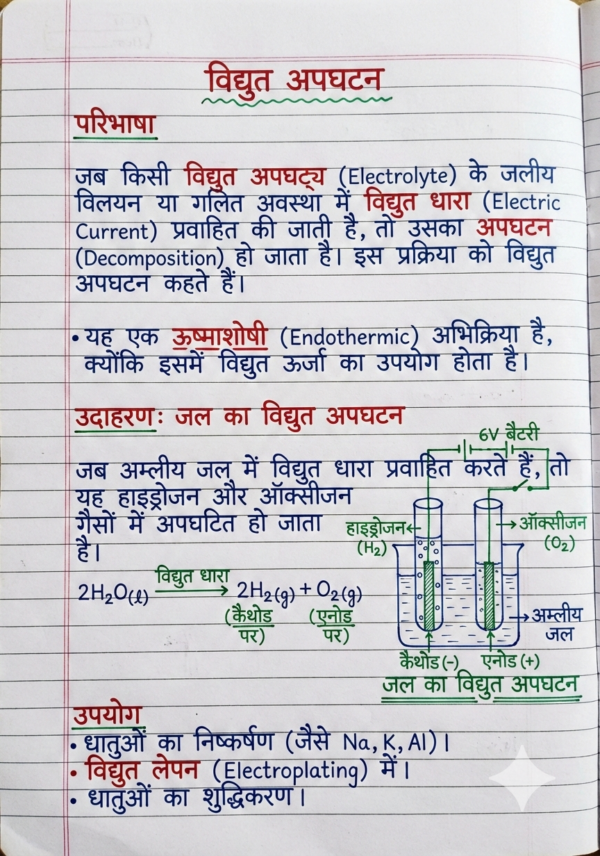 विद्युत अपघटन
परिभाषा
जब किसी विद्युत अपघट्य (Electrolyte) के जलीय
विलयन या गलित अवस्था में विद्युत धारा (Electric
Current) प्रवाहित की जाती है, तो उसका अपघटन
(Decomposition) हो जाता है। इस प्रक्रिया को विद्युत
अपघटन कहते हैं।
• यह एक ऊष्माशोषी (Endothermic) अभिक्रिया है,
क्योंकि इसमें विद्युत ऊर्जा का उपयोग होता है।
उदाहरण: जल का विद्युत अपघटन
6V बैटरी
जब अम्लीय जल में विद्युत धारा प्रवाहित करते हैं, तो
यह हाइड्रोजन और ऑक्सीजन
गैसों में अपघटित हो जाता
है।
हाइड्रोजन
(H₂)
ऑक्सीजन
(O₂)
विद्युत धारा
2H₂O(l) → 2H₂(g) + O₂(g)
(कैथोड पर) (एनोड पर)
अम्लीय
जल
कैथोड (-) एनोड (+)
जल का विद्युत अपघटन
उपयोग
• धातुओं का निष्कर्षण (जैसे Na, K, Al)।
• विद्युत लेपन (Electroplating) में।
• धातुओं का शुद्धिकरण।